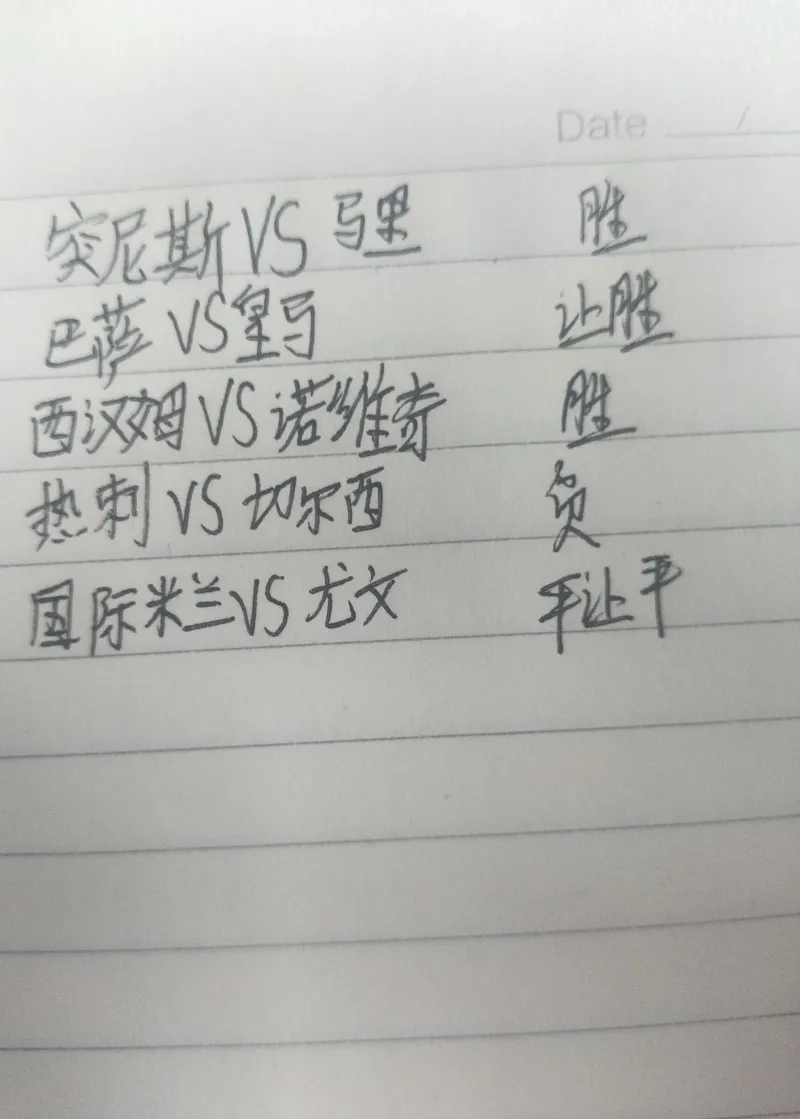 Date /
突尼斯VS马里 胜
巴萨VS皇马 让胜
西汉姆VS诺维奇 胜
热刺VS切尔西 负
国际米兰VS尤文 平让平